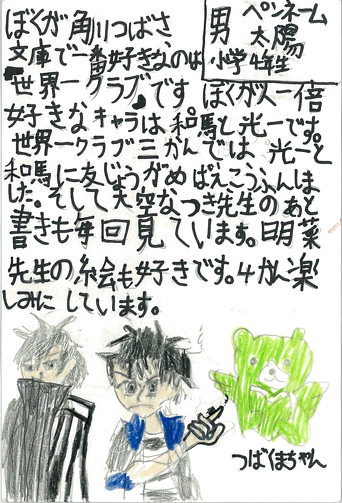 男 ペンネーム
太陽
小学4年生
ぼくが角川つばさ
文庫で一番好きなのは
世界一クラブです ぼくが人一倍
好きなキャラは和馬と光一です。
世界一クラブ三かんでは、光一と
和馬に友じょうがめばえこうふんしま
した。そして大空なつき先生のあと
書きも毎回見ています。明菜
先生の絵も好きです。4かん楽
しみにしています。
つばくまちゃん